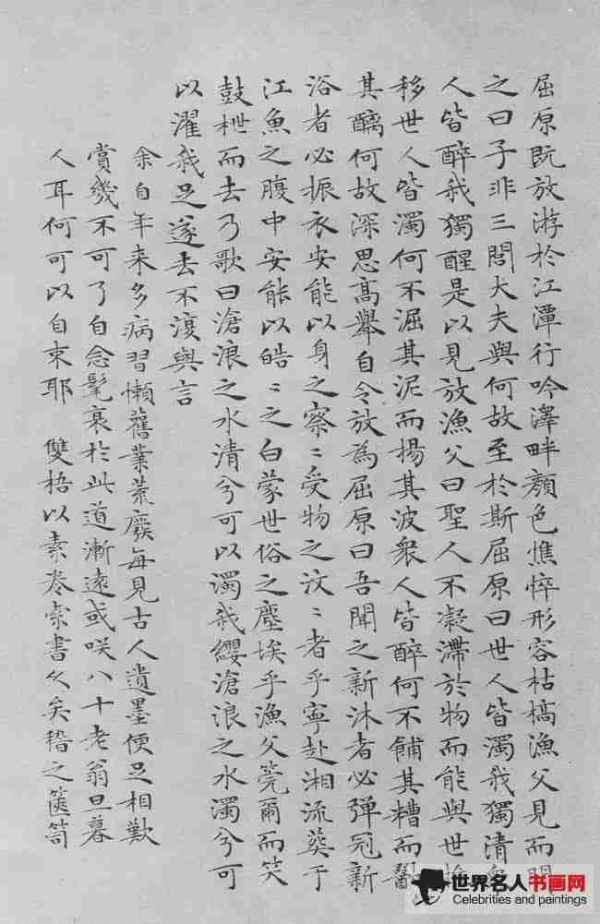 屈原既放游於江潭行吟澤畔顏色憔悴形容枯槁漁父見而問
之曰子非三閭大夫與何故至於斯屈原曰世人皆濁我獨清眾
人皆醉我獨醒是以見放漁父曰聖人不凝滯於物而能與世推
移世人皆濁何不淈其泥而揚其波衆人皆醉何不餔其糟而歠
其醨何故深思高舉自令放為屈原曰吾聞之新沐者必彈冠新
浴者必振衣安能以身之察〻受物之汶〻者乎寧赴湘流葬于
江魚之腹中安能以皓〻之白蒙世俗之塵埃乎漁父莞爾而笑
鼓枻而去乃歌曰滄浪之水清兮可以濯我纓滄浪之水濁兮可
以濯我足遂去不復與言
余自年来多病習懶舊業荒廢每見古人遺墨便足相歎
賞幾不可了自念髦衰於此道漸遠或咲八十老翁旦暮
人耳何可以自束耶 雙梧以素卷索書久矣稽之篋笥
世界名人书画网
Celebrities and paintings